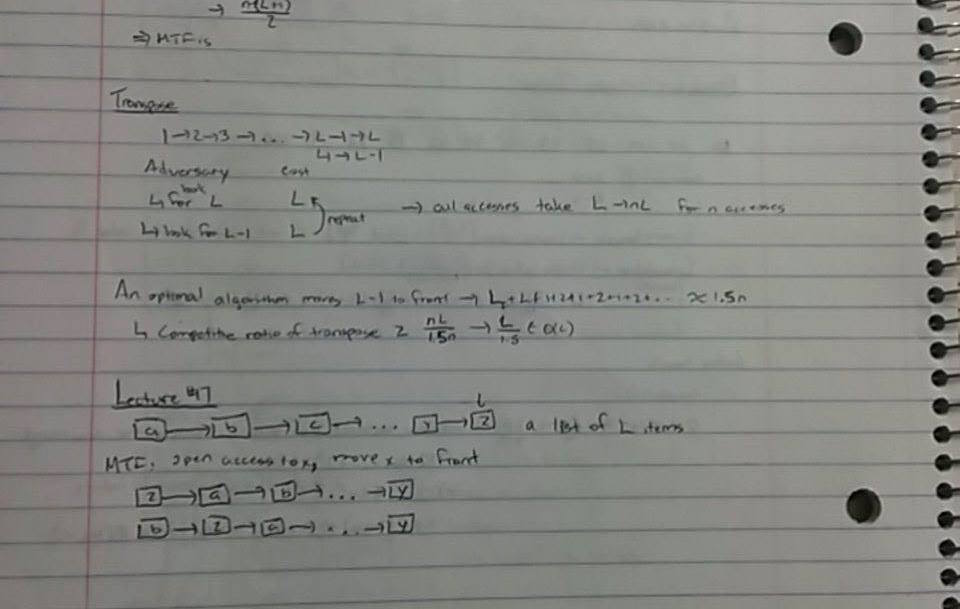 → n(L+1)/2
⇒ MTF is
Transpose
1→2→3→... →L-1→L
L→L-1
Adversary cost
↳ look for L L
repeat → all accesses take L → nL for n accesses
↳ look for L-1 L
An optimal algorithm moves L-1 to front → L+L+1+2+1+2+1+2+... ≈ 1.5n
↳ Competitive ratio of transpose ≥ nL/1.5n → L/1.5 ∈ O(L)
Lecture #17
L
a → b → c → ... y → z a list of L items
MTF: upon access to x, move x to front
z → a → b → ... → y
b → z → a → ... → y